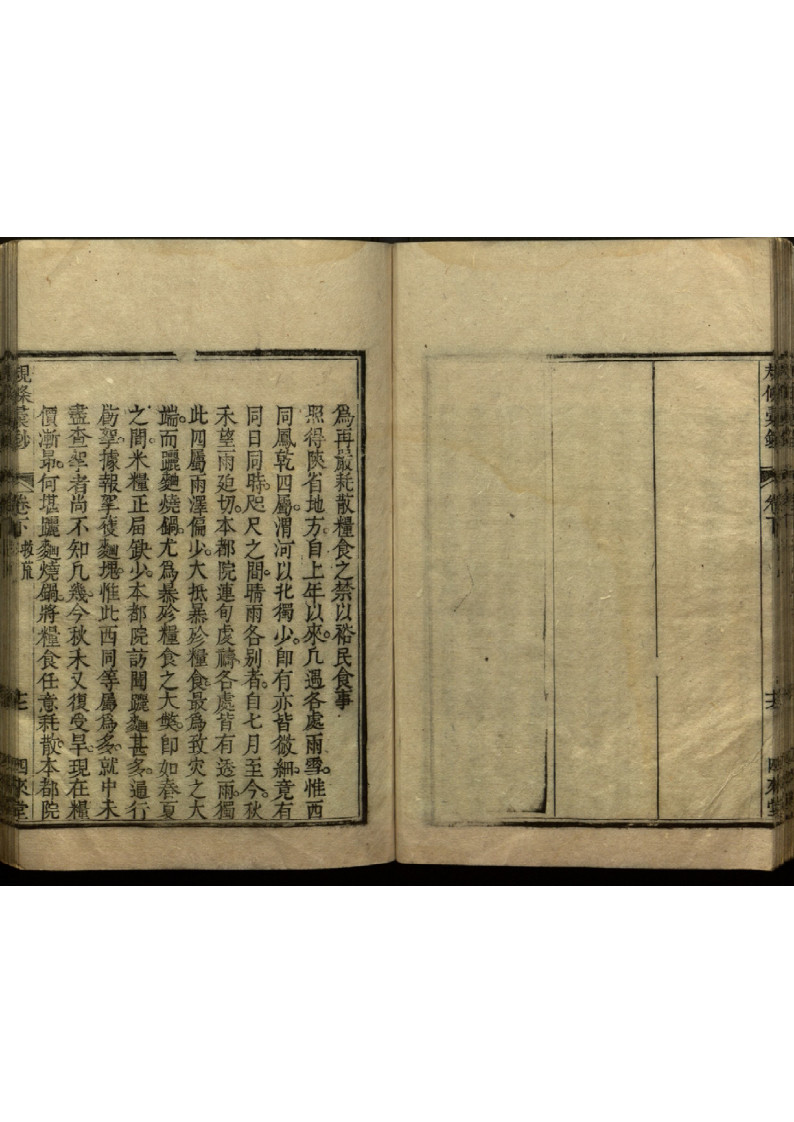 為再嚴耗散糧食之禁以裕民食事
照得陝省地方自上年以來。凡遇各處雨雪。惟西
同鳳乾四屬。渭河以北獨少。即有亦皆微細。竟有
同日同時。咫尺之間。晴雨各別者。自七月至今。秋
禾望雨廹切。本都院連旬虔禱。各處皆有透雨。獨
此四屬雨澤偏少。大抵暴殄糧食。最為致灾之大
端。而躧麯燒鍋。尤為暴殄糧食之大弊。即如春夏
之間。米糧正届缺少。本都院訪聞躧麯甚多。通行
飭拏。據報拏獲麯塊。惟此西同等屬為多。就中未
盡查拏者。尚不知凡幾。今秋禾又復受旱。現在糧
價漸昂。何堪躧麯燒鍋。將糧食任意耗散。本都院
卷下
四來堂